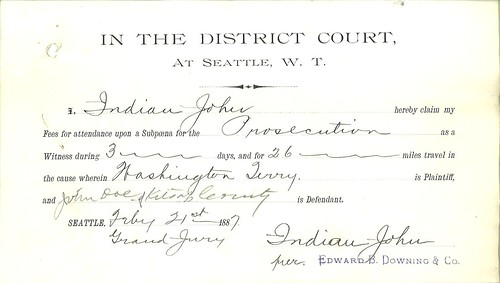 IN THE DISTRICT COURT,
AT SEATTLE, W. T.
I, Indian John hereby claim my
Fees for attendance upon a Subpœna for the Prosecution as a
Witness during 3 days, and for 26 miles travel in
the cause wherein Washington Terry. is Plaintiff,
and John Doe Kitsap County is Defendant.
SEATTLE, Feby 21st 1887.
Grand Jury
Indian John
per. EDWARD B. DOWNING & CO.